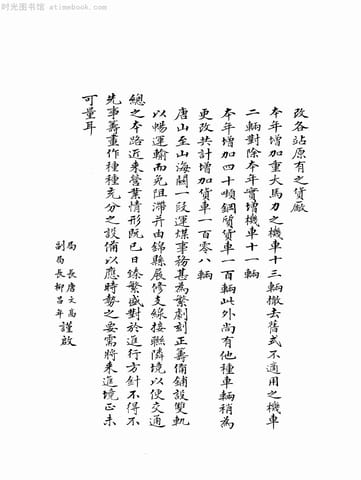 时光图书馆 - atimebook.com
改各站原有之貨廠
本年增加重大馬力之機車十三輛撤去舊式不適用之機車
二輛對除本年實增機車十一輛
本年增加四十噸鋼質貨車一百輛此外尚有他種車輛稍為
更改共計增加貨車一百零八輛
唐山至山海關一段運煤事務甚為繁劇刻正籌備鋪設雙軌
以暢運輸而免阻滯并由錦縣展修支綫接聯隣境以便交通
總之本路近來營業情形既已日臻繁盛對於進行方針不得不
先事籌畫作種種充分之設備以應時勢之要需將來進境正未
可量耳
局長唐文高
副局長柳昌年
謹啟